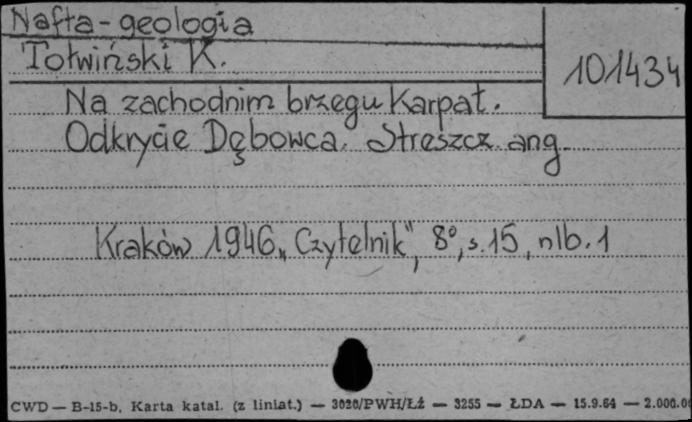 Nafta - geologia
Tołwiński K.
101434
Na zachodnim brzegu Karpat.
Odkrycie Dębowca. Streszcz. ang.
Kraków 1946 „Czytelnik", 8°, s. 15, nlb. 1
CWD — B-15-b, Karta katal. (z liniat.) — 3020/PWH/Łź — 3255 — ŁDA — 15.9.64 — 2.000.00